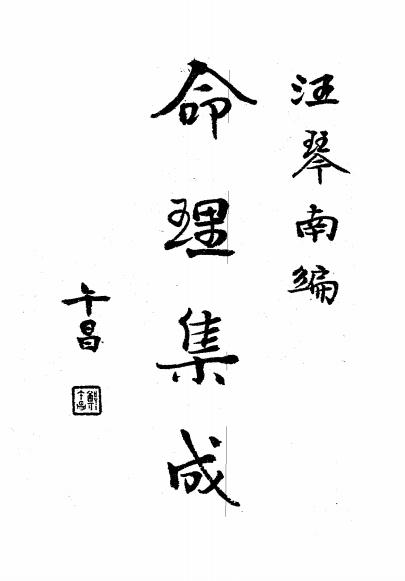 汪琴南编
命理集成
午昌